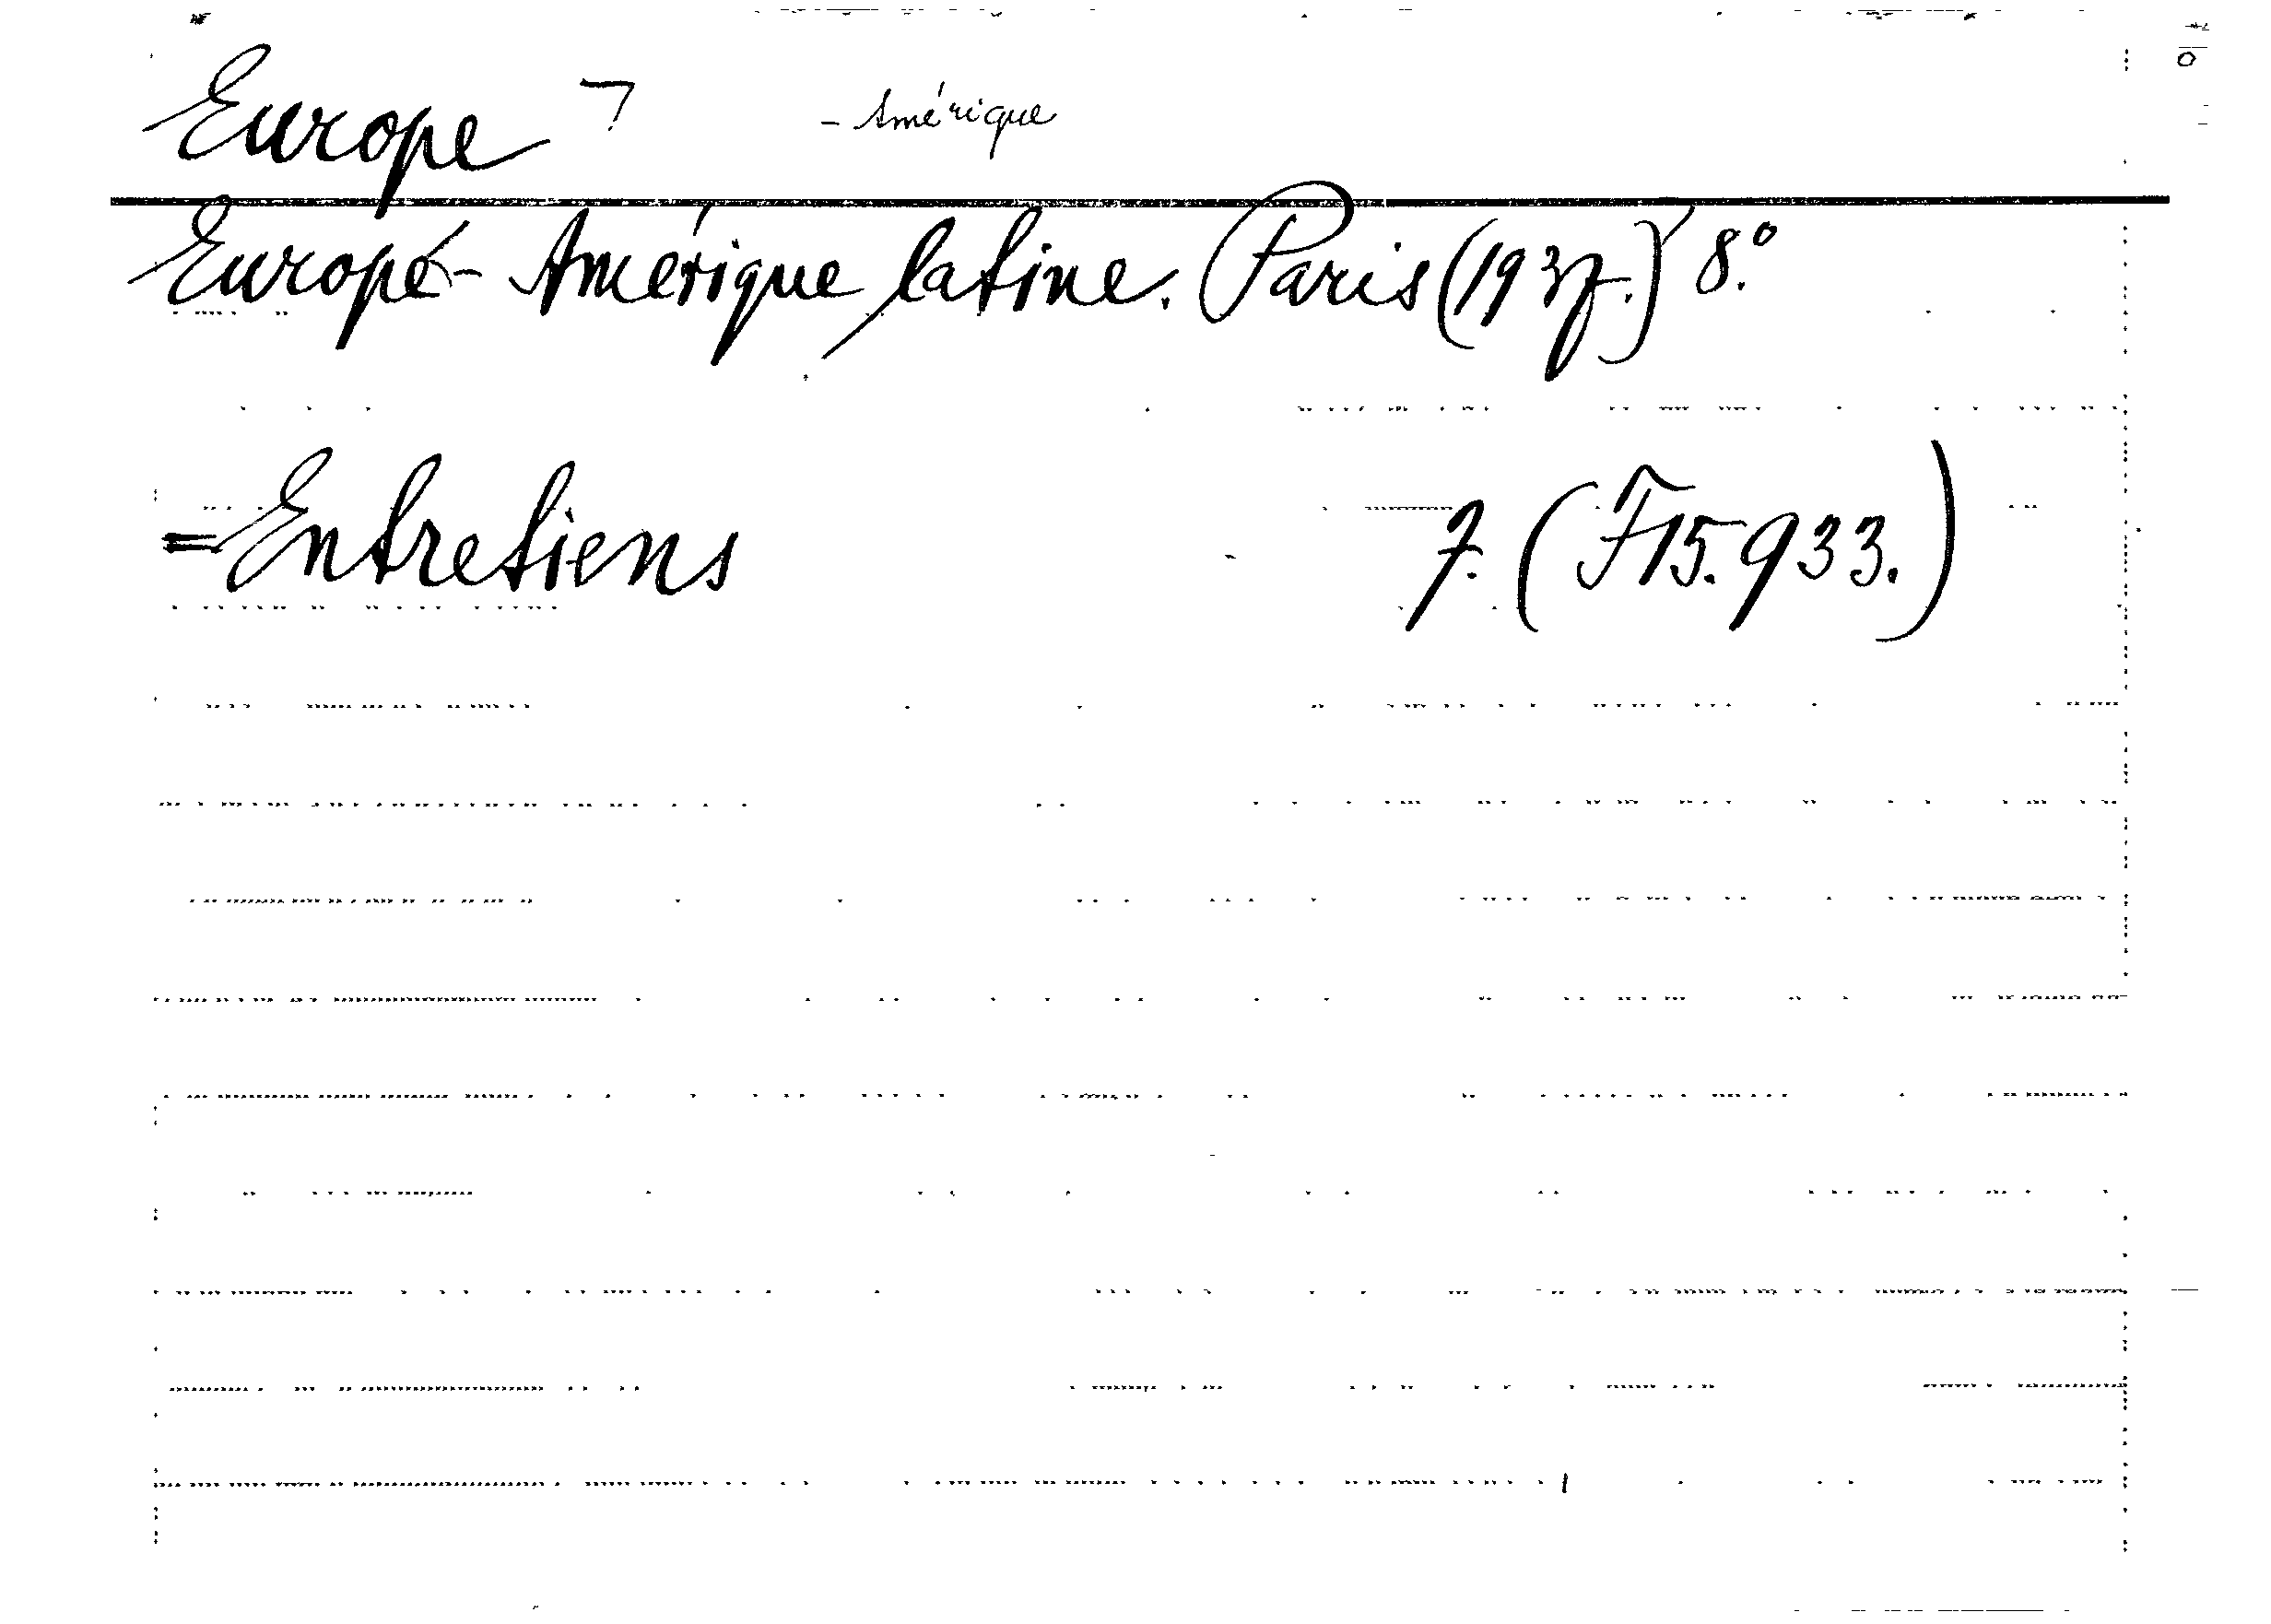 Europe ¬ - Amérique
Europe - Amérique latine. Paris (1937.) 8.°
= Entretiens 7. (F 15.933.)